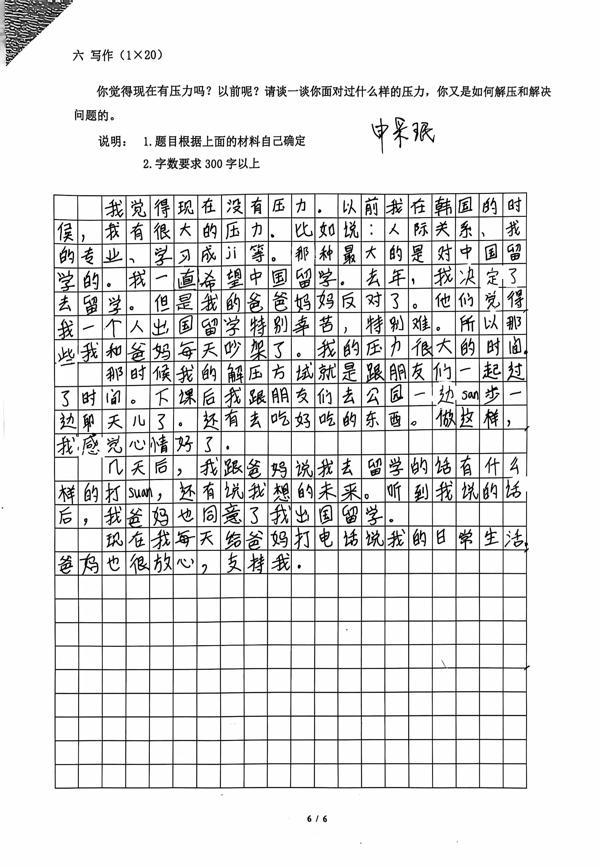 六 写作（1×20）
你觉得现在有压力吗？以前呢？请谈一谈你面对过什么样的压力，你又是如何解压和解决
问题的。
说明： 1.题目根据上面的材料自己确定
2.字数要求 300 字以上
申采珉
我觉得现在没有压力．以前我在韩国的时
候，我有很大的压力．比如说：人际关系、我
的专业、学习成ji等。那种最大的是对中国留
学的。我一直希望中国留学。去年，我决定了
去留学。但是我的爸爸妈妈反对了。他们觉得
我一个人出国留学特别辛苦，特别难。所以那
些我和爸妈每天吵架了。我的压力很大的时间．
那时候我的解压方试就是跟朋友们一起过
了时间。下课后我跟朋友们去公园一边san步一
边聊天儿了。还有去吃好吃的东西。做这样，
我感觉心情好了．
几天后，我跟爸妈说我去留学的话有什么
样的打suan，还有说我想的未来。听到我说的话
后，我爸妈也同意了我出国留学。
现在我每天给爸妈打电话说我的日常生活．
爸妈也很放心，支持我．
6 / 6